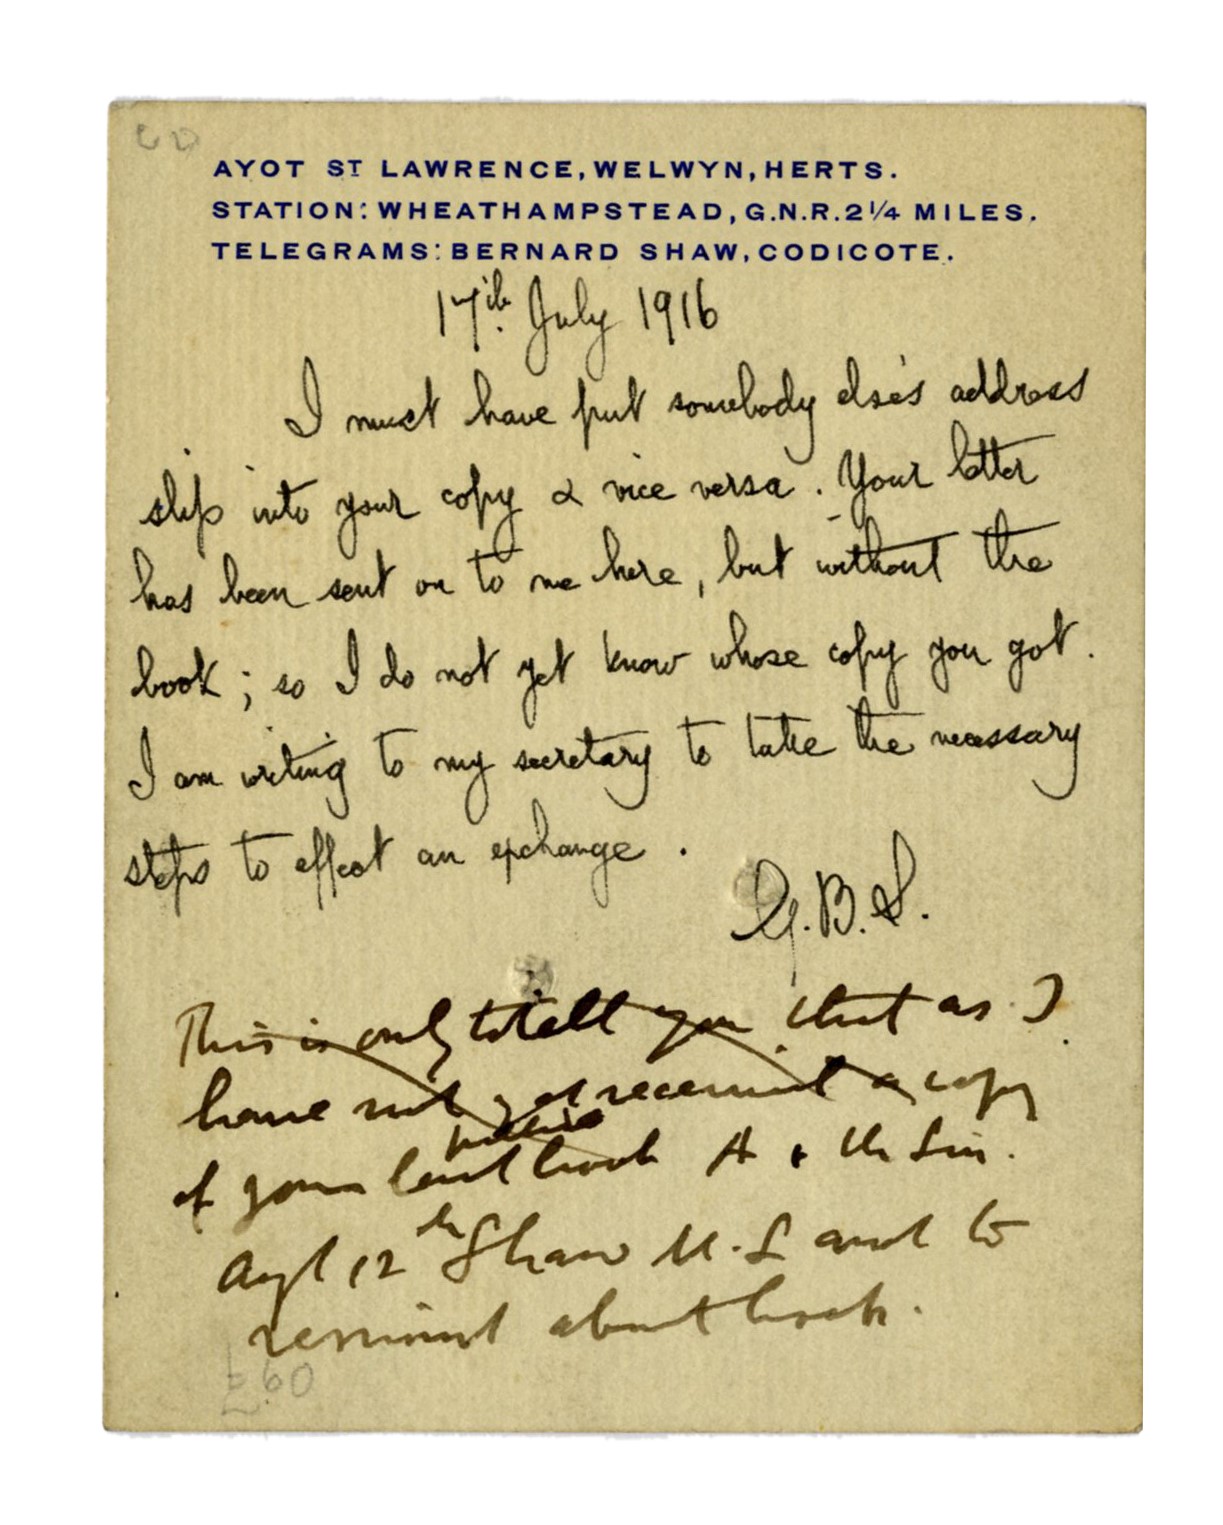 AYOT ST LAWRENCE, WELWYN, HERTS.
STATION: WHEATHAMPSTEAD, G.N.R. 2¼ MILES.
TELEGRAMS: BERNARD SHAW, CODICOTE.
17th July 1916
I must have put somebody else's address
slip into your copy & vice versa. Your letter
has been sent on to me here, but without the
book; so I do not yet know whose copy you got.
I am writing to my secretary to take the necessary
steps to effect an exchange.
G.B.S.
This is only to tell you that as I
have not yet received a copy
of your last book A & the Lion.
Augt 12th Shaw and to
remind about book.
£60